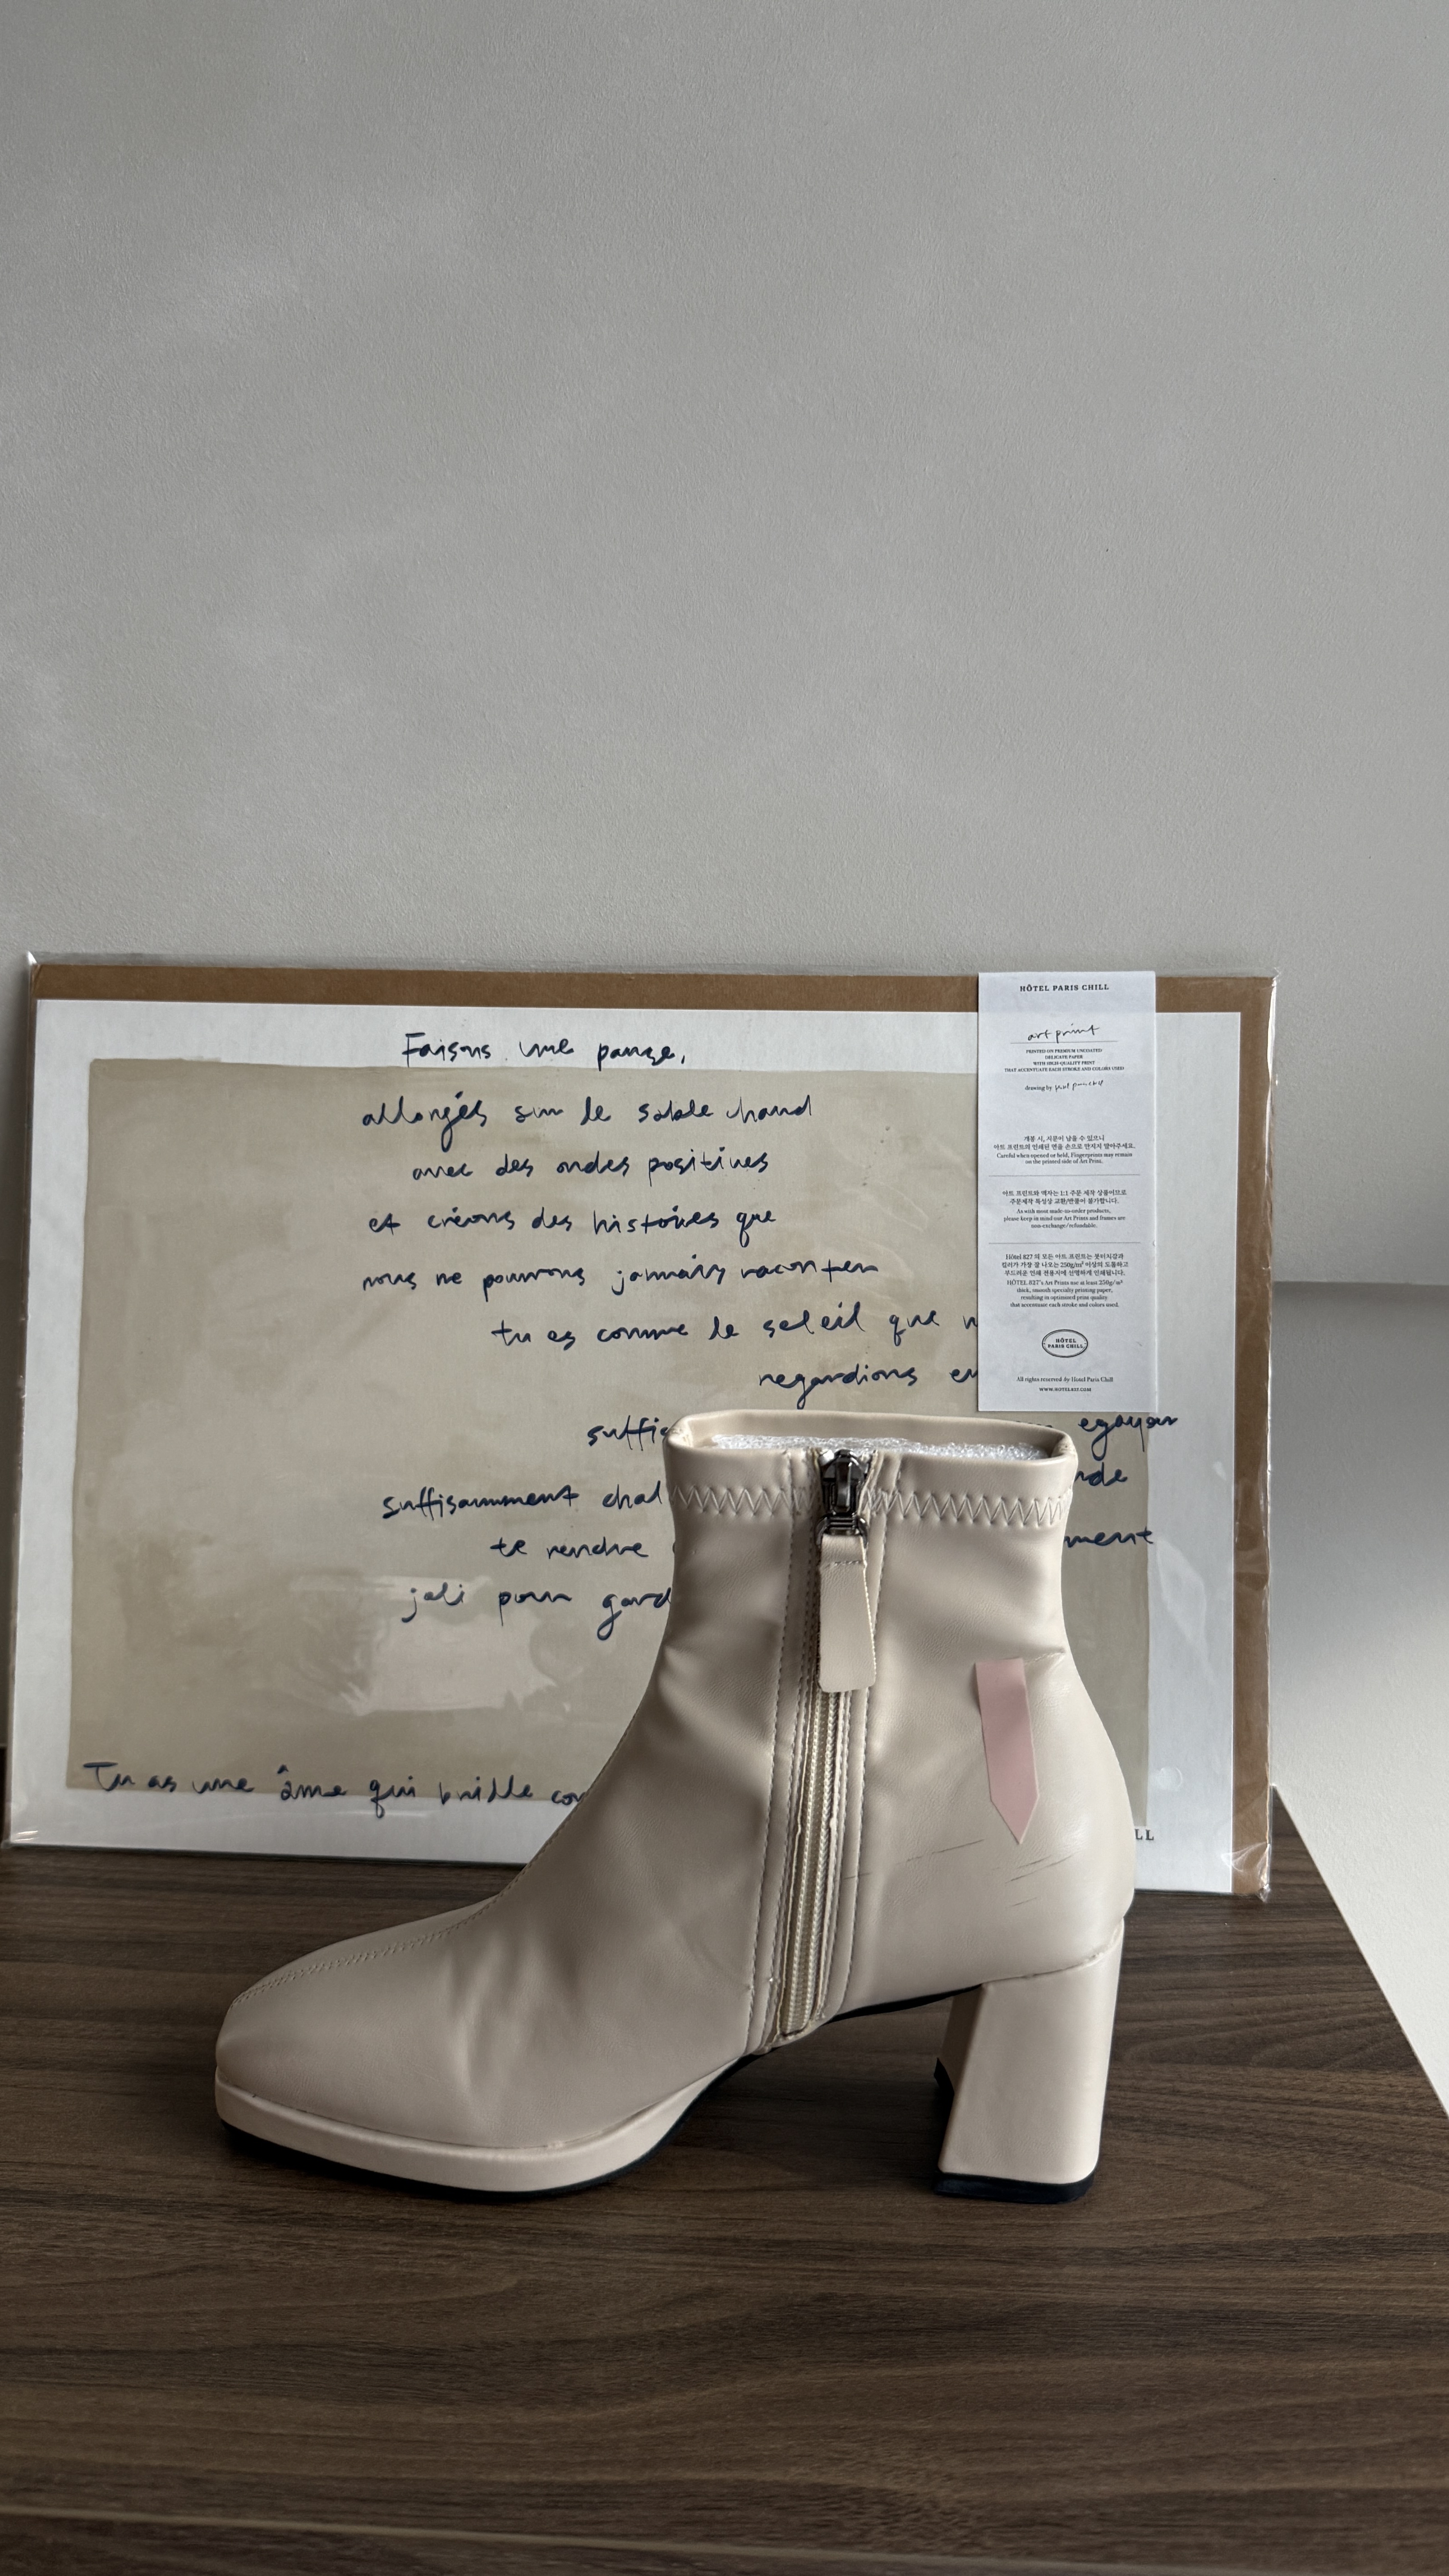 Faisons une pause,
allongés sur le sable chaud
avec des ondes positives
et créons des histoires que
nous ne pourrons jamais raconter
tu es comme le soleil que
regardions
egayer
suffisamment
te rendre
joli pour
Tu as une âme qui brille
LL
HÔTEL PARIS CHILL
art print
PRINTED ON PREMIUM UNCOATED
DELICATE PAPER
WITH HIGH-QUALITY PRINT
THAT ACCENTUATE EACH STROKE AND COLORS USED
drawing by
개봉 시, 지문이 남을 수 있으니
아트 프린트의 인쇄된 면을 손으로 만지지 말아주세요.
Careful when opened or held, Fingerprints may remain
on the printed side of Art Print.
아트 프린트와 액자는 1:1 주문 제작 상품이므로
주문제작 특성상 교환/반품이 불가합니다.
As with most made-to-order products,
please keep in mind our Art Prints and frames are
non-exchange/refundable.
Hôtel 827 의 모든 아트 프린트는 붓터치감과
컬러가 가장 잘 나오는 250g/m² 이상의 도톰하고
부드러운 인쇄 전용지에 선명하게 인쇄됩니다.
HÔTEL 827's Art Prints use at least 250g/m²
thick, smooth specialty printing paper,
resulting in optimized print quality
that accentuate each stroke and colors used.
HÔTEL
PARIS CHILL
All rights reserved by Hotel Paris Chill
WWW.HOTEL827.COM